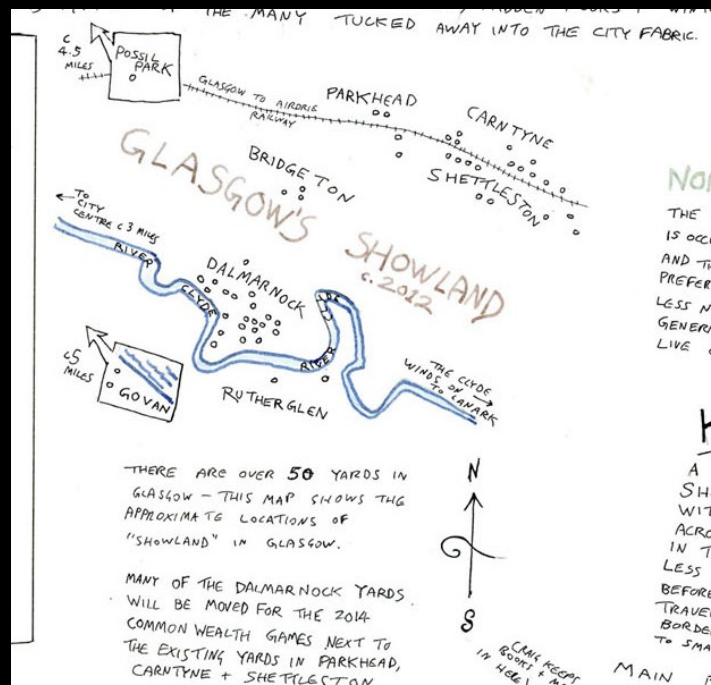 THE MANY TUCKED AWAY INTO THE CITY FABRIC.
C
4.5
MILES
POSSIL
PARK
GLASGOW TO AIRDRIE
RAILWAY
PARKHEAD
CARNTYNE
SHETTLESTON
BRIDGETON
GLASGOW'S SHOWLAND
c. 2012
TO
CITY
CENTRE c 3 MILES
RIVER
CLYDE
DALMARNOCK
RIVER
THE CLYDE
WINDS ON
TO LANARK
c5
MILES
GOVAN
RUTHERGLEN
THERE ARE OVER 50 YARDS IN
GLASGOW – THIS MAP SHOWS THE
APPROXIMATE LOCATIONS OF
"SHOWLAND" IN GLASGOW.
MANY OF THE DALMARNOCK YARDS
WILL BE MOVED FOR THE 2014
COMMON WEALTH GAMES NEXT TO
THE EXISTING YARDS IN PARKHEAD,
CARNTYNE + SHETTLESTON
N
S
CRAIG KEEPS
BOOKS +
IN HERE!
THE
IS
AND
LESS
LIVE
A
IN
LESS
BEFORE
TO
MAIN